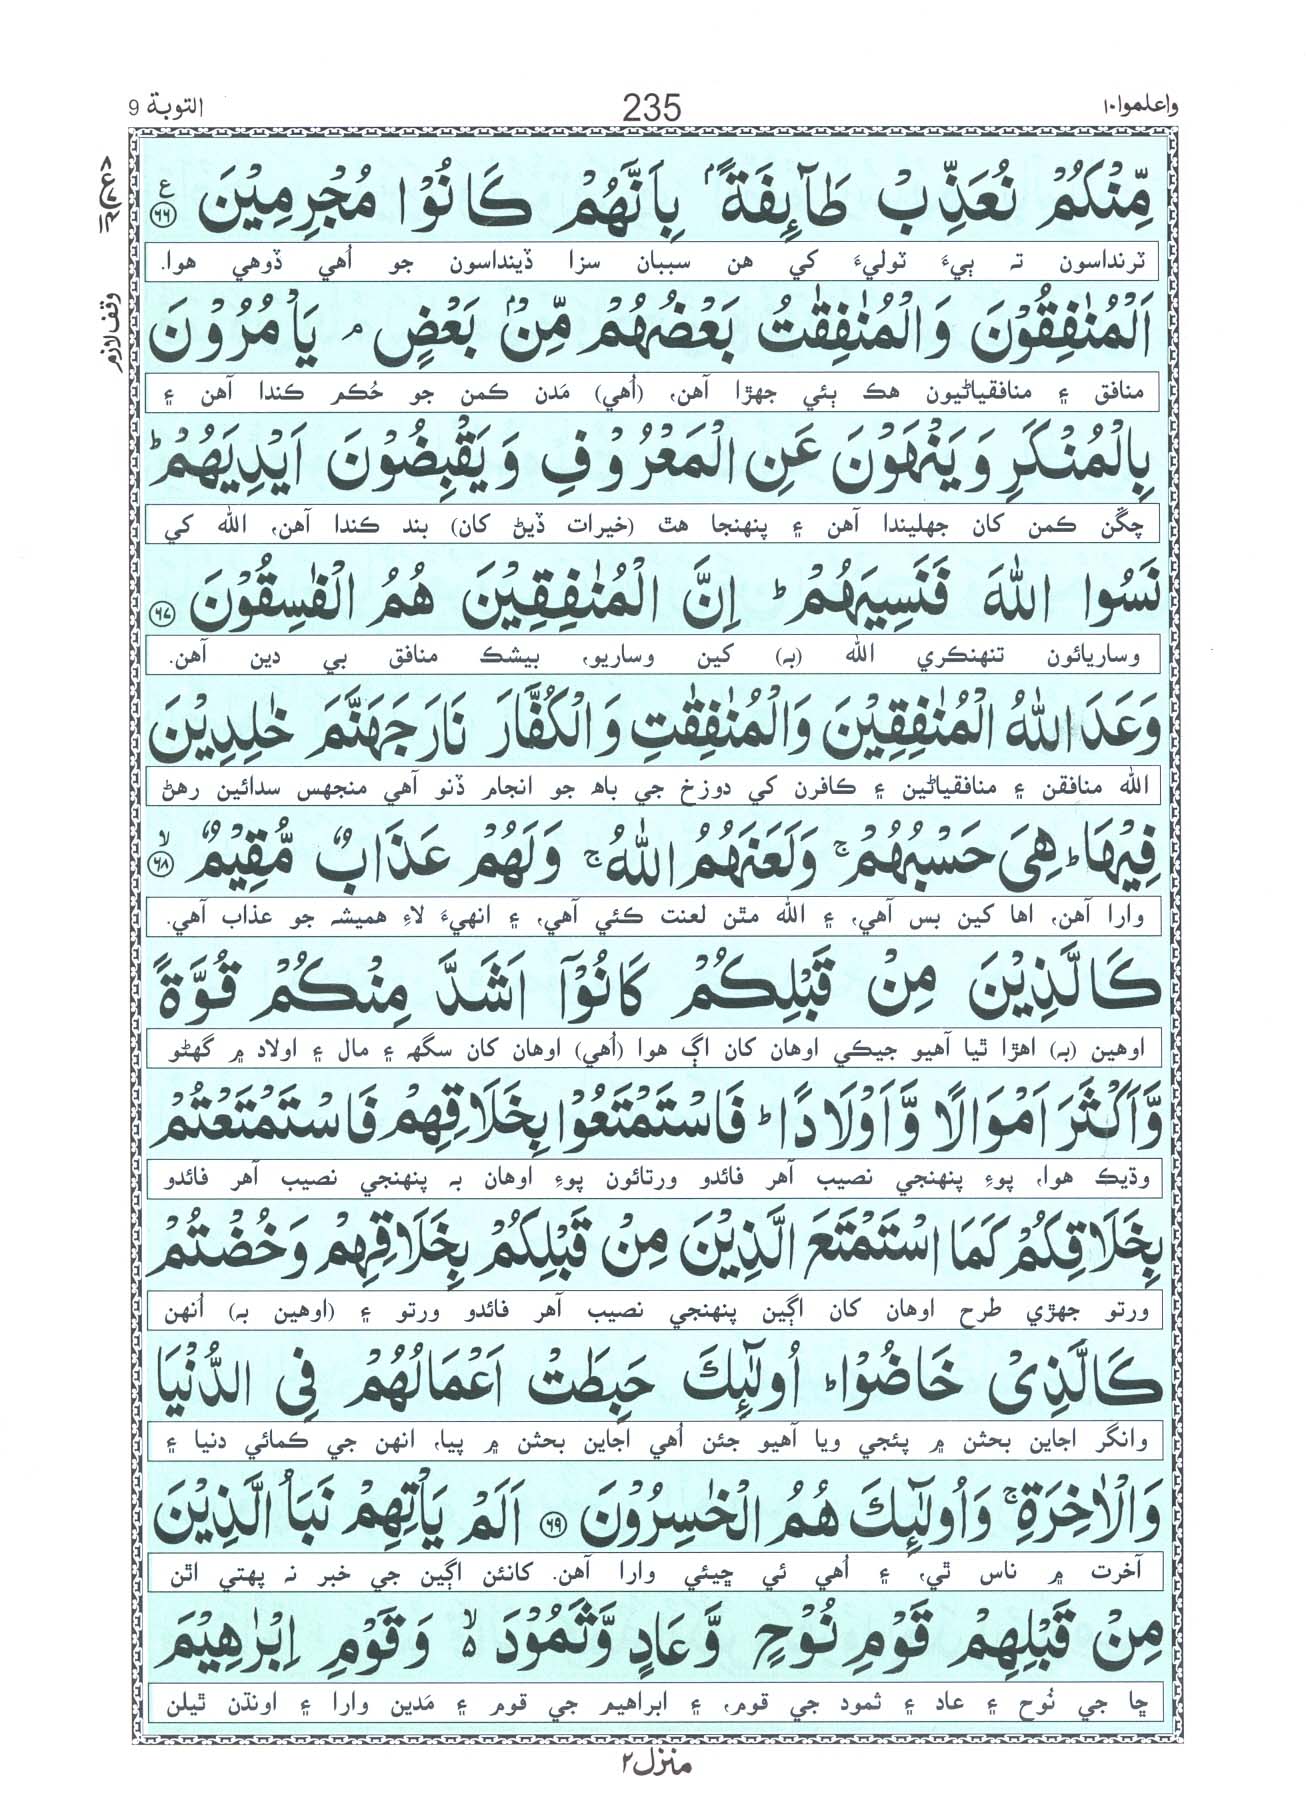 واعلموا١٠ 235 التوبة 9
مِّنْكُمْ نُعَذِّبْ طَآئِفَةًۢ بِاَنَّهُمْ كَانُوْا مُجْرِمِيْنَ ﴿۶۶﴾ ع
ٽرنداسون تہ ٻيءَ ٽوليءَ کي هن سببان سزا ڏينداسون جو اُهي ڏوهي هوا.
اَلْمُنٰفِقُوْنَ وَالْمُنٰفِقٰتُ بَعْضُهُمْ مِّنْۢ بَعْضٍ ۘ يَاْمُرُوْنَ
وقف لازم
منافق ۽ منافقياڻيون هڪ ٻئي جهڙا آهن، (اُهي) مَدن ڪمن جو حُڪم ڪندا آهن ۽
بِالْمُنْكَرِ وَيَنْهَوْنَ عَنِ الْمَعْرُوْفِ وَيَقْبِضُوْنَ اَيْدِيَهُمْ ؕ
چڱن ڪمن کان جهليندا آهن ۽ پنهنجا هٿ (خيرات ڏيڻ کان) بند ڪندا آهن، الله کي
نَسُوا اللّٰهَ فَنَسِيَهُمْ ؕ اِنَّ الْمُنٰفِقِيْنَ هُمُ الْفٰسِقُوْنَ ﴿۶۷﴾
وساريائون تنهنڪري الله (بہ) کين وساريو، بيشڪ منافق بي دين آهن.
وَعَدَ اللّٰهُ الْمُنٰفِقِيْنَ وَالْمُنٰفِقٰتِ وَالْكُفَّارَ نَارَ جَهَنَّمَ خٰلِدِيْنَ
الله منافقن ۽ منافقياڻين ۽ ڪافرن کي دوزخ جي باهہ جو انجام ڏنو آهي منجهس سدائين رهڻ
فِيْهَا ؕ هِيَ حَسْبُهُمْ ۚ وَلَعَنَهُمُ اللّٰهُ ۚ وَلَهُمْ عَذَابٌ مُّقِيْمٌ ﴿۶۸﴾ ۙ
وارا آهن، اها کين بس آهي، ۽ الله مٿن لعنت ڪئي آهي، ۽ انهيءَ لاءِ هميشہ جو عذاب آهي.
كَالَّذِيْنَ مِنْ قَبْلِكُمْ كَانُوْۤا اَشَدَّ مِنْكُمْ قُوَّةً
اوهين (بہ) اهڙا ٿيا آهيو جيڪي اوهان کان اڳ هوا (اُهي) اوهان کان سگهہ ۽ مال ۽ اولاد ۾ گهڻو
وَّاَكْثَرَ اَمْوَالًا وَّاَوْلَادًا ؕ فَاسْتَمْتَعُوْا بِخَلَاقِهِمْ فَاسْتَمْتَعْتُمْ
وڌيڪ هوا، پوءِ پنهنجي نصيب آهر فائدو ورتائون پوءِ اوهان بہ پنهنجي نصيب آهر فائدو
بِخَلَاقِكُمْ كَمَا اسْتَمْتَعَ الَّذِيْنَ مِنْ قَبْلِكُمْ بِخَلَاقِهِمْ وَخُضْتُمْ
ورتو جهڙي طرح اوهان کان اڳين پنهنجي نصيب آهر فائدو ورتو ۽ (اوهين بہ) اُنهن
كَالَّذِيْ خَاضُوْا ؕ اُولٰٓئِكَ حَبِطَتْ اَعْمَالُهُمْ فِى الدُّنْيَا
وانگر اجاين بحثن ۾ پئجي ويا آهيو جئن اُهي اجاين بحثن ۾ پيا، انهن جي ڪمائي دنيا ۽
وَالْاٰخِرَةِ ۚ وَاُولٰٓئِكَ هُمُ الْخٰسِرُوْنَ ﴿۶۹﴾ اَلَمْ يَاْتِهِمْ نَبَاُ الَّذِيْنَ
آخرت ۾ ناس ٿي، ۽ اُهي ئي ڇيئي وارا آهن. کانئن اڳين جي خبر نہ پهتي اٿن
مِنْ قَبْلِهِمْ قَوْمِ نُوْحٍ وَّعَادٍ وَّثَمُوْدَ ۙ۬ وَقَوْمِ اِبْرٰهِيْمَ
ڇا جي نُوح ۽ عاد ۽ ثمود جي قوم، ۽ ابراهيم جي قوم ۽ مَدين وارا ۽ اونڌن ٿيلن
منزل ٢